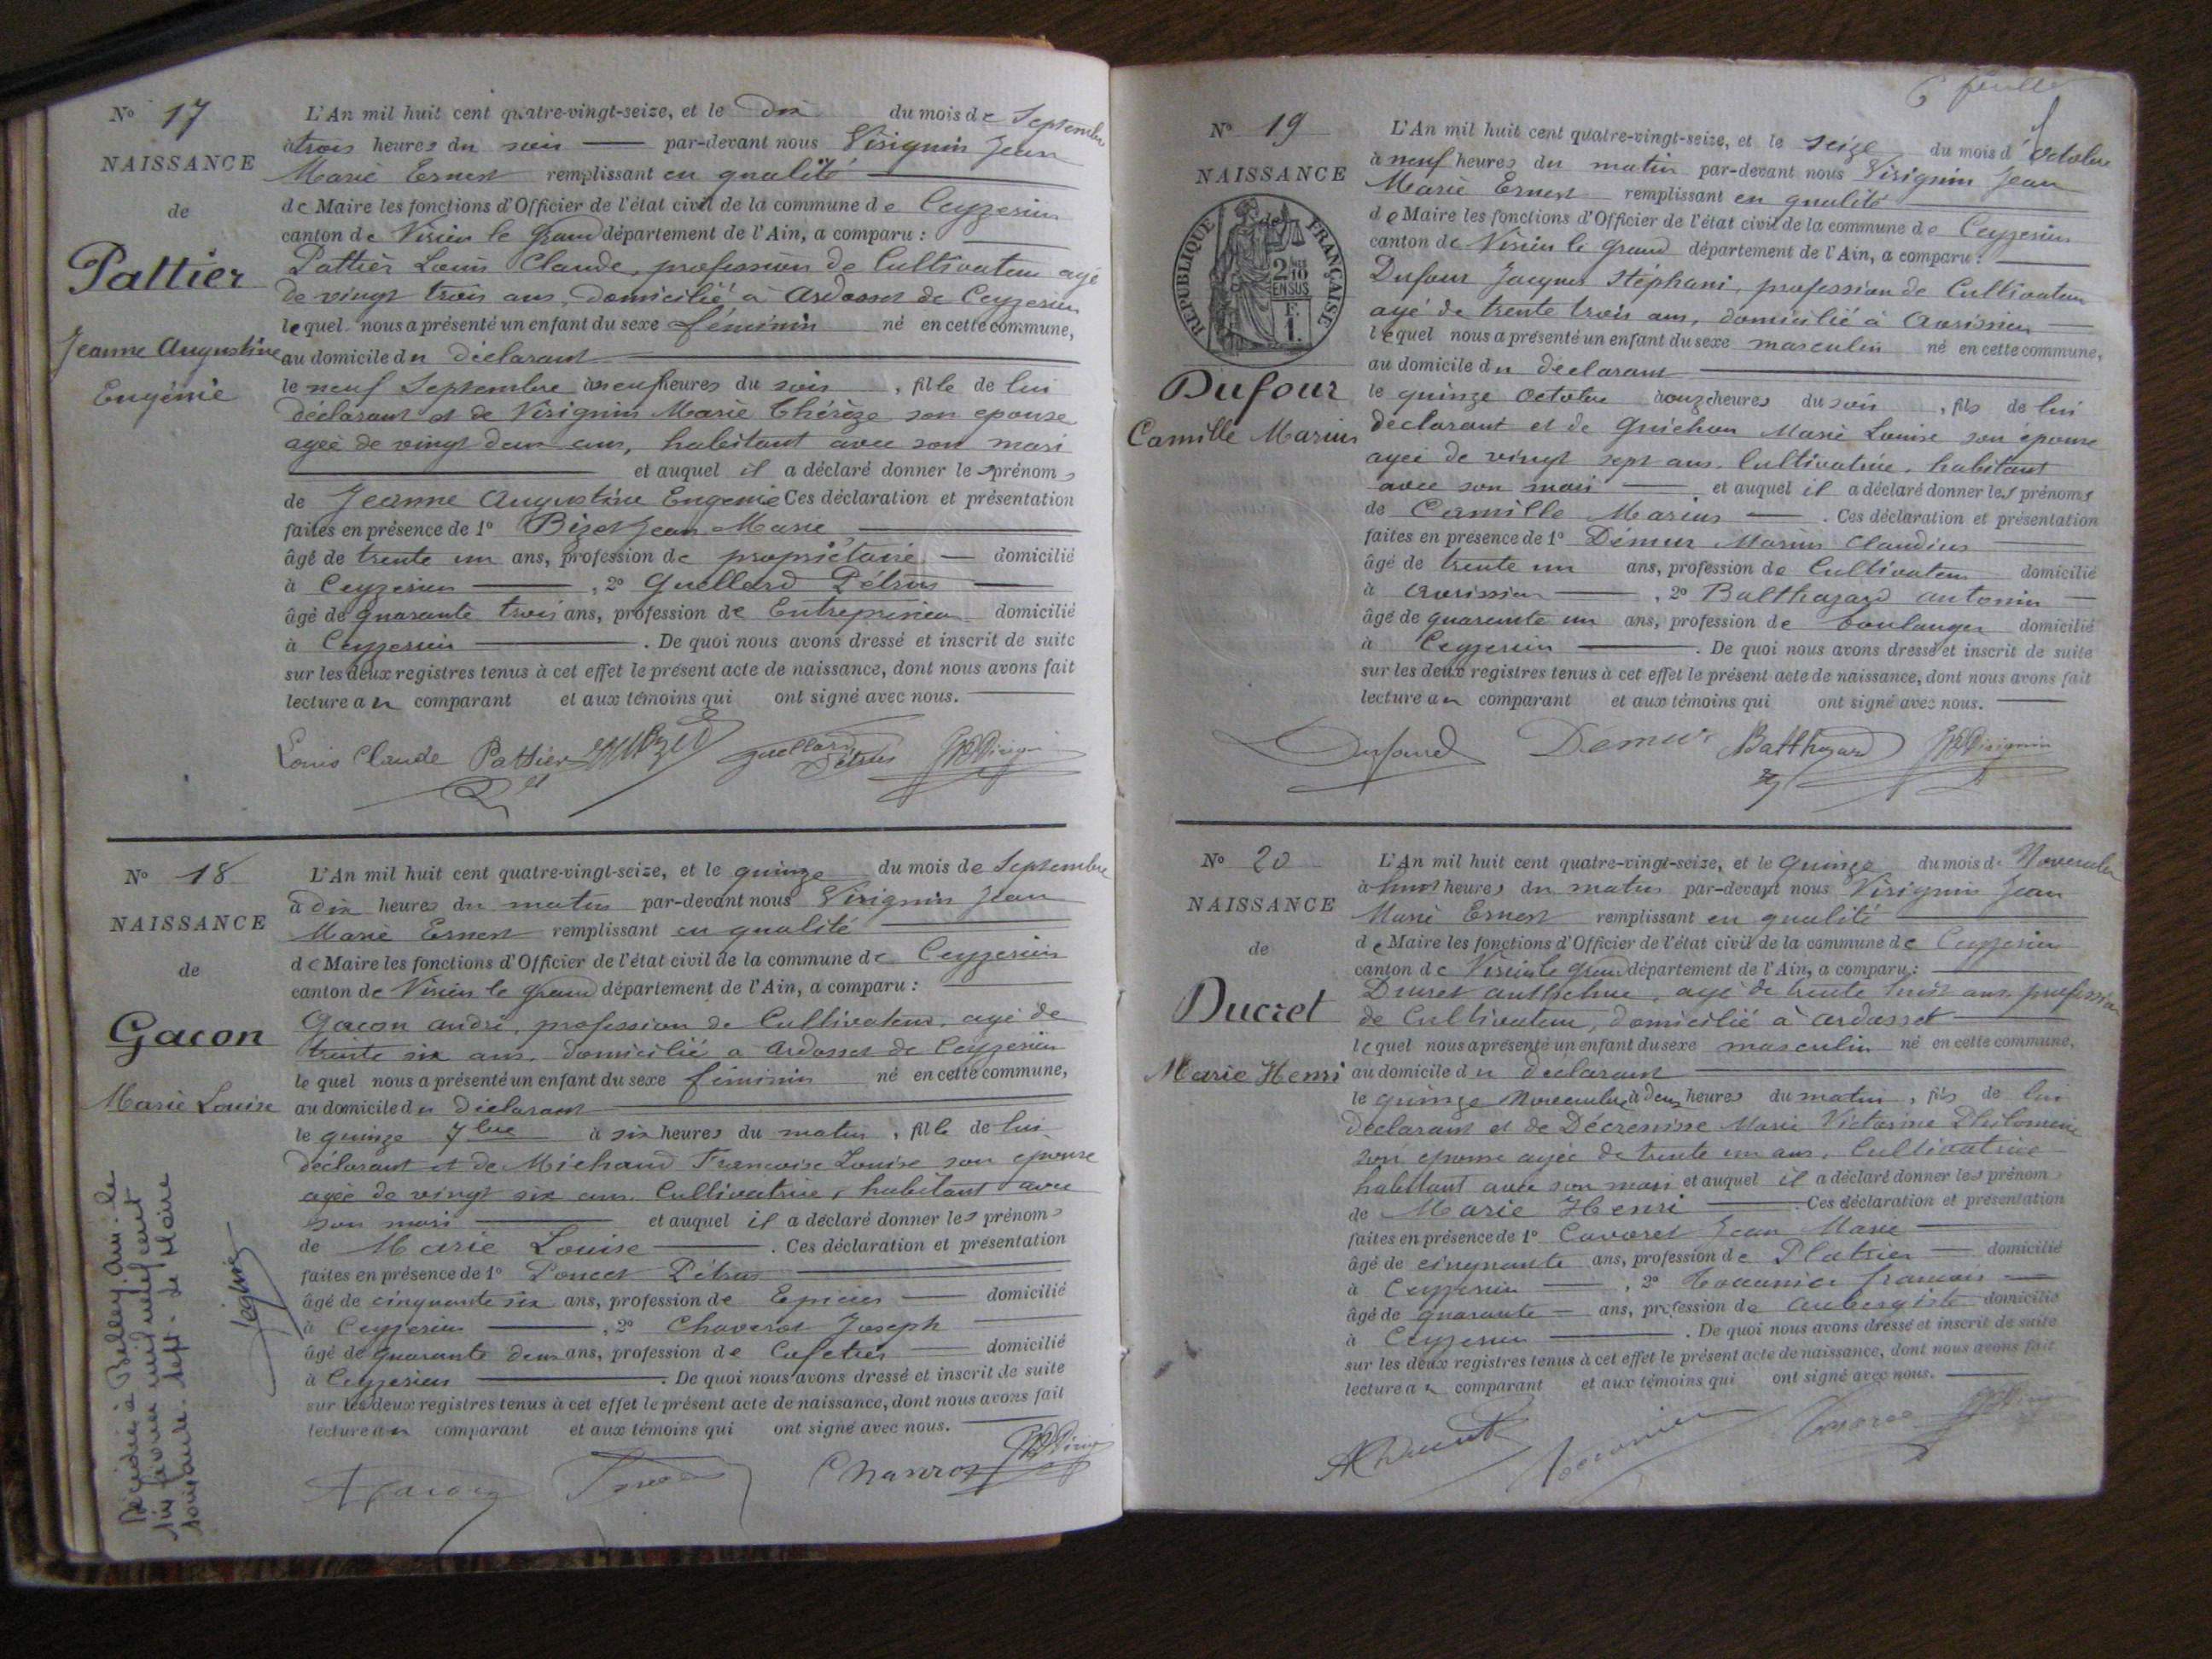 N° 17
NAISSANCE
de
Pattier
Jeanne Augustine
Eugénie
L'An mil huit cent quatre-vingt-seize, et le dix du mois de Septembre
à trois heures du soir par-devant nous Virignin Jean
Marie Ernest remplissant en qualité
de Maire les fonctions d'Officier de l'état civil de la commune de Ceyzerieu
canton de Virieu le Grand département de l'Ain, a comparu :
Pattier Louis Claude, profession de Cultivateur agé
de vingt trois ans, domicilié à Ardosset de Ceyzerieu
lequel nous a présenté un enfant du sexe féminin né en cette commune,
au domicile du déclarant
le neuf Septembre à neuf heures du soir, fille de lui
déclarant et de Virignin Marie Thérèze son epouse
agée de vingt deux ans, habitant avec son mari
et auquel il a déclaré donner les prénoms
de Jeanne Augustine Eugenie Ces déclaration et présentation
faites en présence de 1° Bizet Jean Marie
âgé de trente un ans, profession de propriétaire domicilié
à Ceyzerieu, 2° Guellard Pétrus
âgé de quarante trois ans, profession de Entrepreneur domicilié
à Ceyzerieu. De quoi nous avons dressé et inscrit de suite
sur les deux registres tenus à cet effet le présent acte de naissance, dont nous avons fait
lecture au comparant et aux témoins qui ont signé avec nous.
Louis Claude Pattier Guellard Pétrus
N° 18
NAISSANCE
de
Gacon
Marie Louise
L'An mil huit cent quatre-vingt-seize, et le quinze du mois de Septembre
à dix heures du matin par-devant nous Virignin Jean
Marie Ernest remplissant en qualité
de Maire les fonctions d'Officier de l'état civil de la commune de Ceyzerieu
canton de Virieu le Grand département de l'Ain, a comparu :
Gacon andré, profession de Cultivateur, agé de
trente six ans, domicilié a Ardosset de Ceyzerieu
lequel nous a présenté un enfant du sexe féminin né en cette commune,
au domicile du déclarant
le quinze 7bre à six heures du matin, fille de lui
déclarant et de Michaud Francoise Louise son epouse
agée de vingt six ans, Cultivatrice, habitant avec
son mari et auquel il a déclaré donner les prénoms
de Marie Louise. Ces déclaration et présentation
faites en présence de 1° Poncet Pétrus
âgé de cinquante six ans, profession de Epicier domicilié
à Ceyzerieu, 2° Chaverot Joseph
âgé de quarante deux ans, profession de Cafetier domicilié
à Ceyzerieu. De quoi nous avons dressé et inscrit de suite
sur les deux registres tenus à cet effet le présent acte de naissance, dont nous avons fait
lecture au comparant et aux témoins qui ont signé avec nous.
Décédée à Belley Ain le
six février mil neuf cent
soixante-sept. Le Maire
6e feuille
N° 19
NAISSANCE
de
RÉPUBLIQUE FRANÇAISE
2/10 EN SUS
F. 1.
Dufour
Camille Marius
L'An mil huit cent quatre-vingt-seize, et le seize du mois d'Octobre
à neuf heures du matin par-devant nous Virignin Jean
Marie Ernest remplissant en qualité
de Maire les fonctions d'Officier de l'état civil de la commune de Ceyzerieu
canton de Virieu le Grand département de l'Ain, a comparu :
Dufour Jacques Stéphani, profession de Cultivateur
agé de trente trois ans, domicilié à Avrissieu
lequel nous a présenté un enfant du sexe masculin né en cette commune,
au domicile du declarant
le quinze Octobre à onze heures du soir, fils de lui
declarant et de Guichon Marie Louise son épouse
agée de vingt sept ans, Cultivatrice, habitant
avec son mari, et auquel il a déclaré donner les prénoms
de Camille Marius. Ces déclaration et présentation
faites en présence de 1° Démur Marius Claudius
âgé de trente un ans, profession de Cultivateur domicilié
à Avrissieu, 2° Balthazard antonin
âgé de quarante un ans, profession de boulanger domicilié
à Ceyzerieu. De quoi nous avons dressé et inscrit de suite
sur les deux registres tenus à cet effet le présent acte de naissance, dont nous avons fait
lecture au comparant et aux témoins qui ont signé avec nous.
Demur Balthazard
N° 20
NAISSANCE
de
Ducret
Marie Henri
L'An mil huit cent quatre-vingt-seize, et le quinze du mois de Novembre
à huit heures du matin par-devant nous Virignin Jean
Marie Ernest remplissant en qualité
de Maire les fonctions d'Officier de l'état civil de la commune de Ceyzerieu
canton de Virieu le Grand département de l'Ain, a comparu :
Ducret anthelme, agé de trente huit ans, profession
de Cultivateur, domicilié à ardosset
lequel nous a présenté un enfant du sexe masculin né en cette commune,
au domicile du declarant
le quinze Novembre à deux heures du matin, fils de lui
declarant et de Décrenisse Marie Victorine Philomène
son epouse agée de trente un ans, Cultivatrice
habitant avec son mari et auquel il a déclaré donner les prénoms
de Marie Henri. Ces déclaration et présentation
faites en présence de 1° Cavoret Jean Marie
âgé de cinquante ans, profession de Platrier domicilié
à Ceyzerieu, 2° francois
âgé de quarante ans, profession de aubergiste domicilié
à Ceyzerieu. De quoi nous avons dressé et inscrit de suite
sur les deux registres tenus à cet effet le présent acte de naissance, dont nous avons fait
lecture au comparant et aux témoins qui ont signé avec nous.